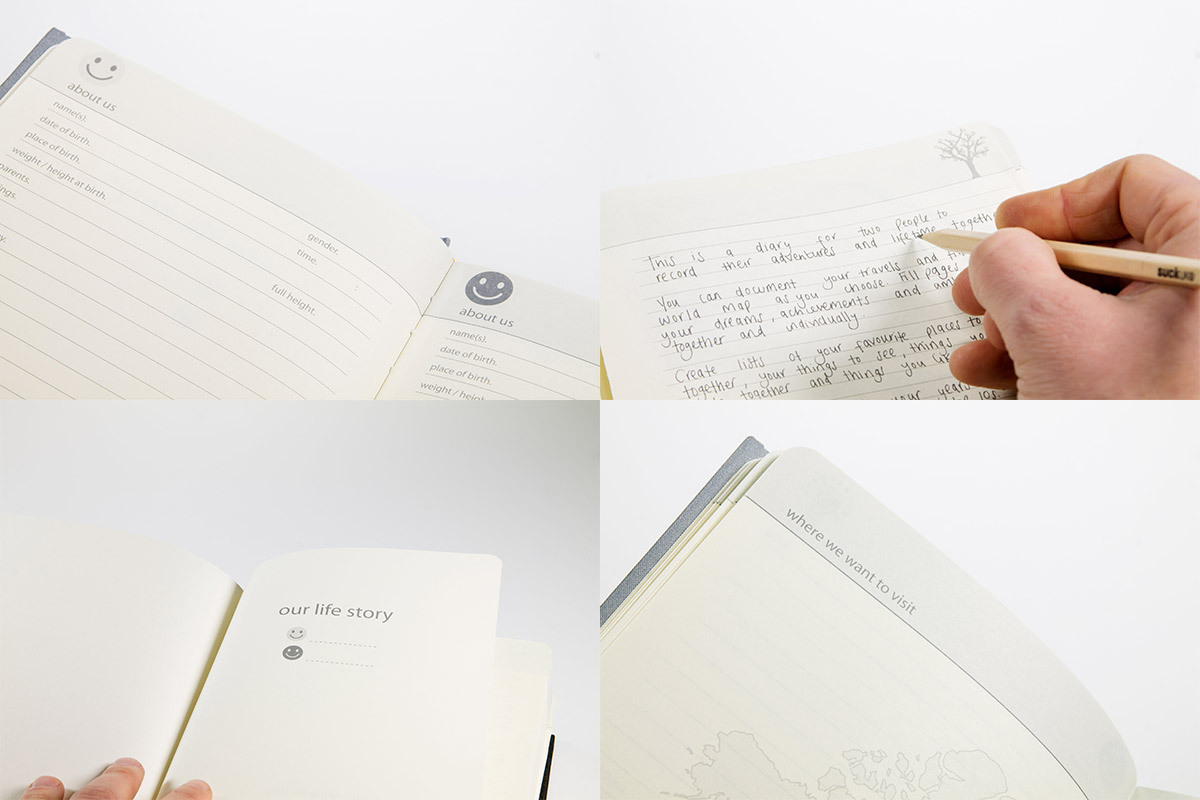 about us
name(s).
date of birth.
place of birth.
weight / height at birth.
parents.
gender.
time.
full height.
about us
name(s).
date of birth.
place of birth.
weight /
This is a diary for two people to
record their adventures and lifetime
You can document your travels and
world map as you choose. Fill pages
your dreams, achievements and
together and individually.
Create lists of your favourite places to
together, your things to see, things
together and things you
your years
suck
our life story
where we want to visit